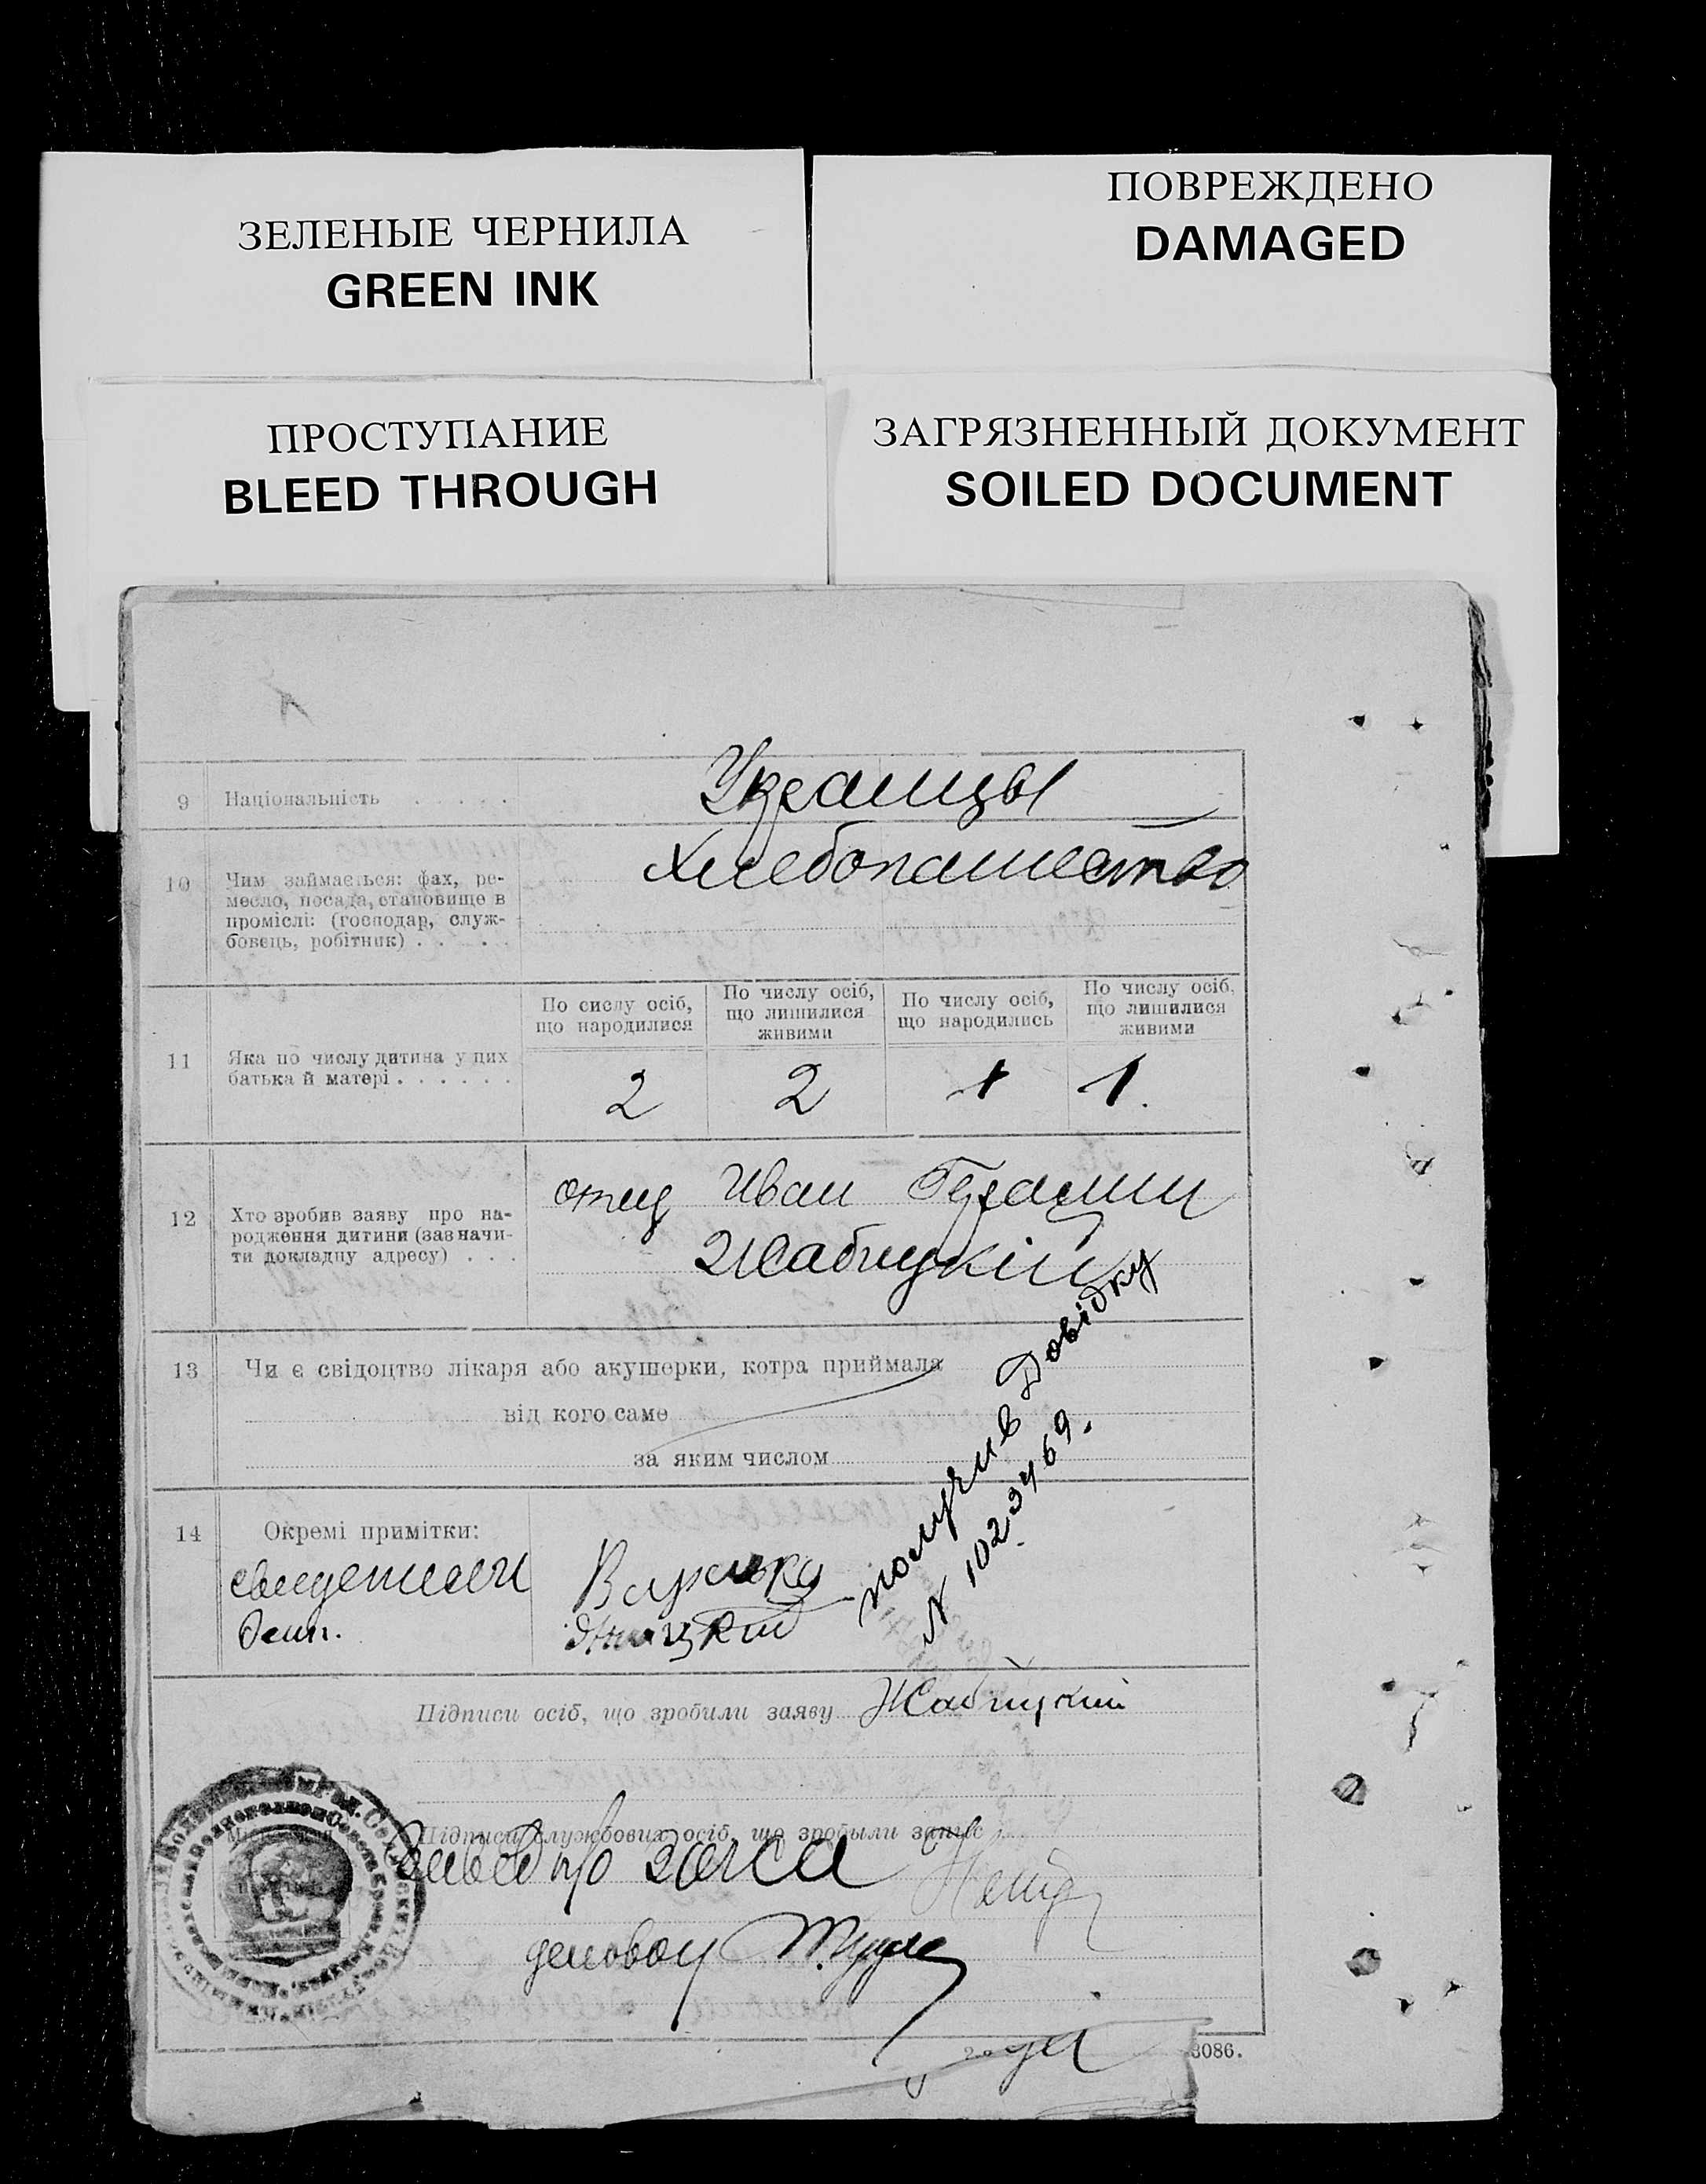 ЗЕЛЕНЫЕ ЧЕРНИЛА
GREEN INK
ПОВРЕЖДЕНО
DAMAGED
ПРОСТУПАНИЕ
BLEED THROUGH
ЗАГРЯЗНЕННЫЙ ДОКУМЕНТ
SOILED DOCUMENT
9 Національність . . . . . Украинцы
10 Чим займається: фах, ре-
месло, посада, становище в
проміслі: (господар, служ-
бовець, робітник) . . . .
Хлебопашество
11 Яка по числу дитина у цих
батька й матері . . . . . .
По сислу осіб,
що народилися
2
По числу осіб,
що лишилися
живими
2
По числу осіб,
що народились
1
По числу осіб,
що лишилися
живими
1.
12 Хто зробив заяву про на-
родження дитини (зазначи-
ти докладну адресу) . . .
отец Иван
Жабицкій
13 Чи є свідоцтво лікаря або акушерки, котра приймала
від кого саме
за яким числом
получив Довідку
N 1023469.
14 Окремі примітки:
свидетели
Підписи осіб, що зробили заяву Жабицкий
Підписи службових осіб, що зробыли запис
загса
3086.